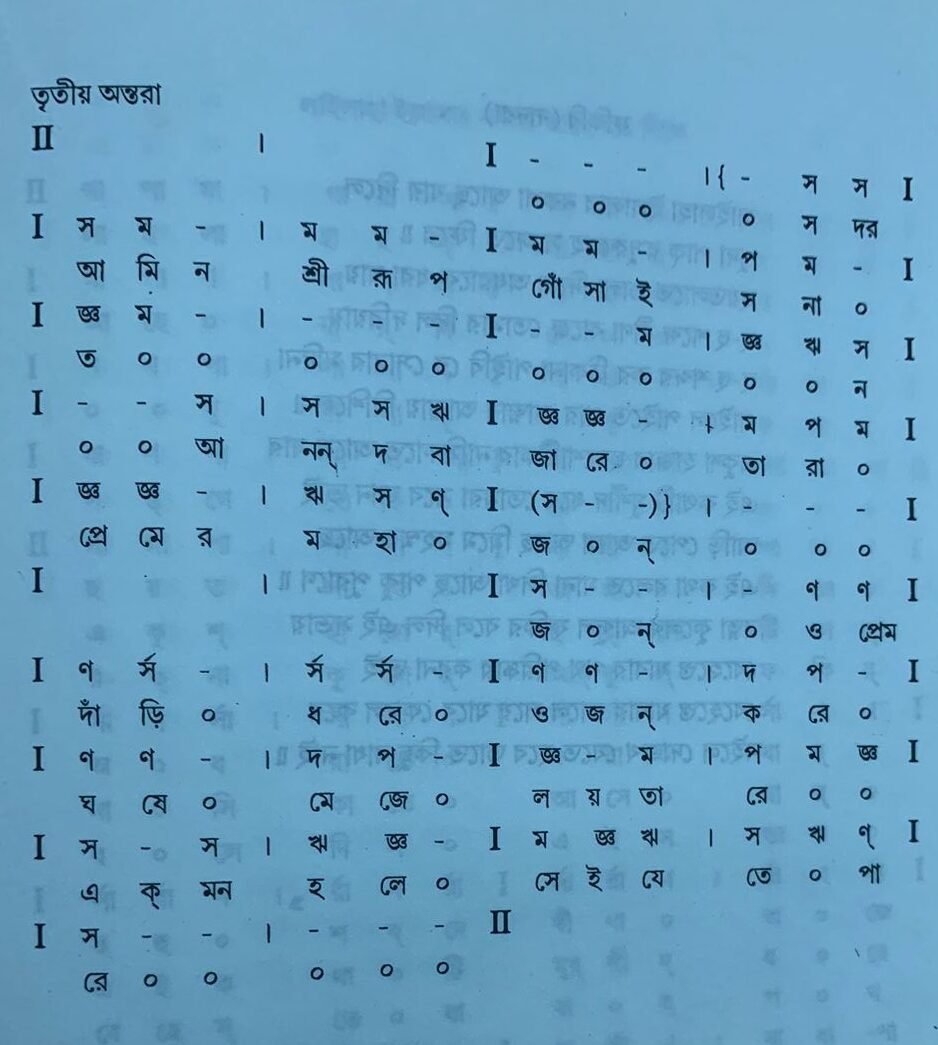 তৃতীয় অন্তরা
II । I - - - ।{ - স স I
০ ০ ০ ০ স দর
I স ম - । ম ম - I ম ম - । প ম - I
আ মি ন শ্রী রূ প গোঁ সা ই স না ০
I জ্ঞ ম - । - - - I - - ম । জ্ঞ ঋ স I
ত ০ ০ ০ ০ ০ ০ ০ ০ ০ ০ ন
I - - স । স স ঋ I জ্ঞ জ্ঞ - । ম প ম I
০ ০ আ নন্ দ বা জা রে ০ তা রা ০
I জ্ঞ জ্ঞ - । ঋ স ণ্ I (স - -)} । - - - I
প্রে মে র ম হা ০ জ ০ ন্ ০ ০ ০
I । I স - - । - ণ ণ I
জ ০ ন্ ০ ও প্রেম
I ণ র্স - । র্স র্স - I ণ ণ - । দ প - I
দাঁ ড়ি ০ ধ রে ০ ও জ ন্ ক রে ০
I ণ ণ - । দ প - I জ্ঞ - ম । প ম জ্ঞ I
ঘ ষে ০ মে জে ০ ল য় তা রে ০ ০
I স - স । ঋ জ্ঞ - I ম জ্ঞ ঋ । স ঋ ণ্ I
এ ক্ মন হ লে ০ সে ই যে তে ০ পা
I স - - । - - - II
রে ০ ০ ০ ০ ০